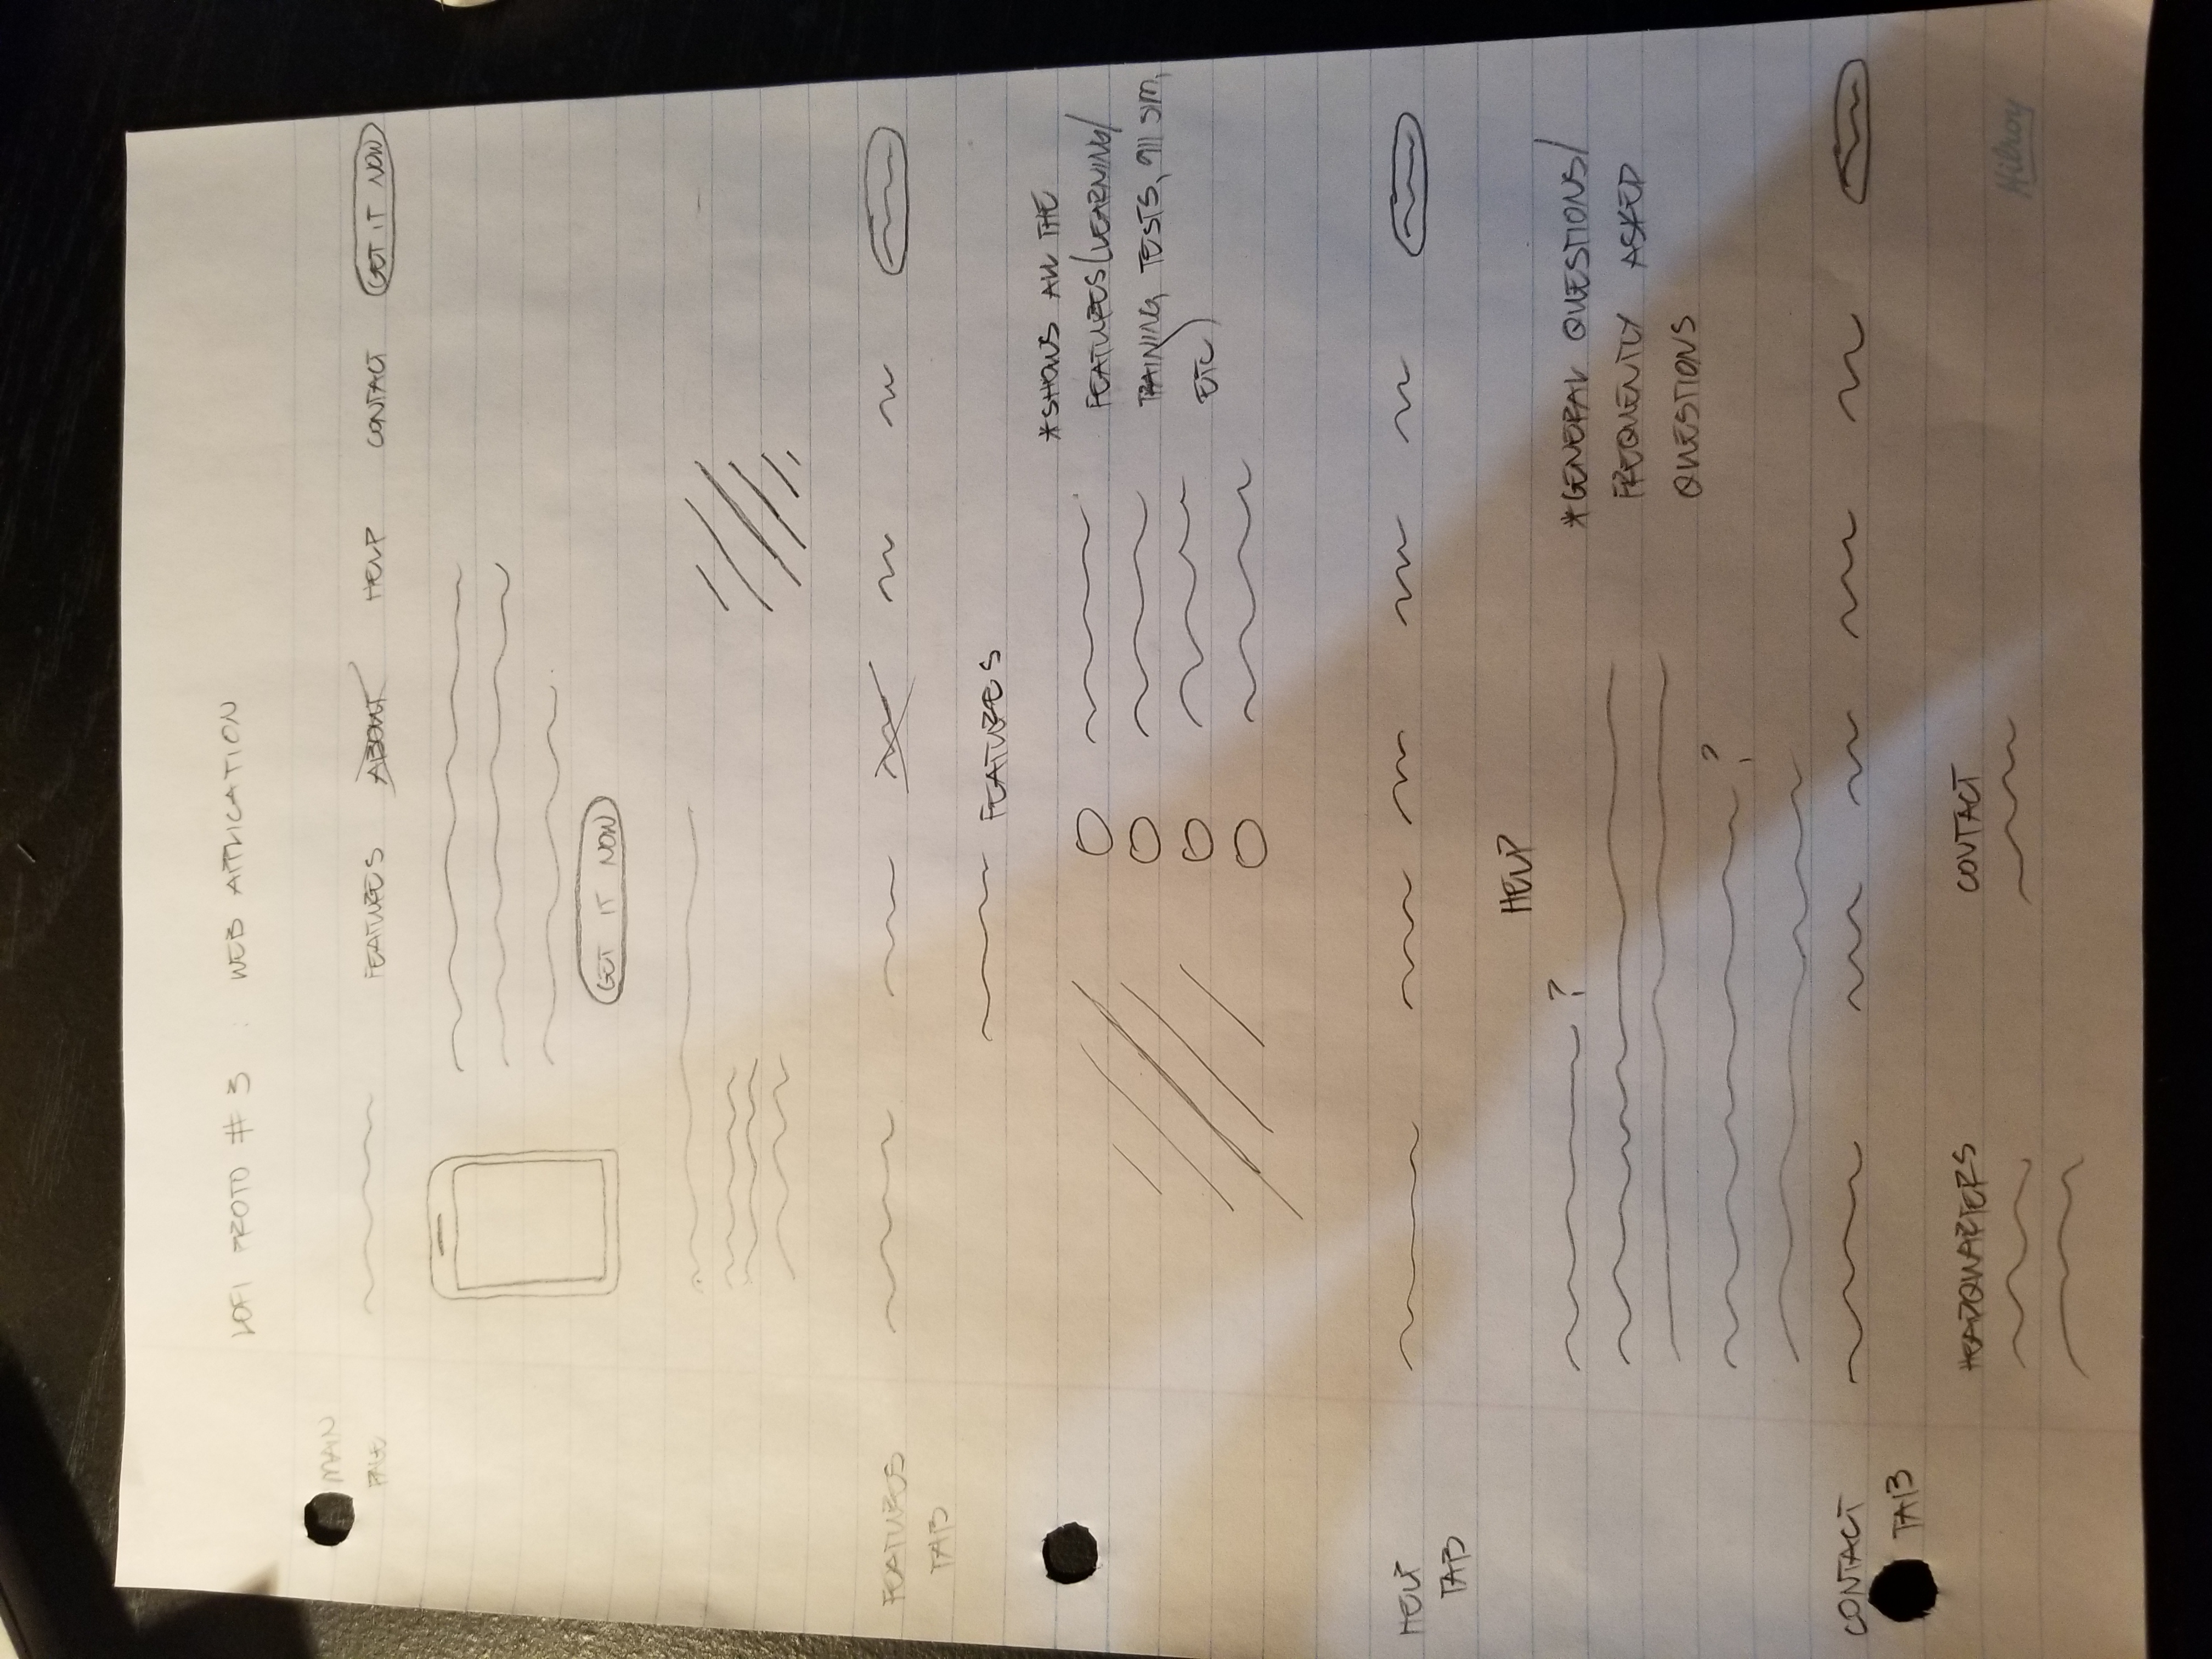 LOFI PROTO # 3 : WEB APPLICATION
MAIN
PAGE
FEATURES ABOUT HELP CONTACT GET IT NOW
GET IT NOW
FEATURES
TAB
FEATURES
*SHOWS ALL THE
FEATURES (LEARNING/
TRAINING, TESTS, 911 SIM,
ETC)
HELP
TAB
HELP
?
*GENERAL QUESTIONS/
FREQUENTLY ASKED
QUESTIONS
?
CONTACT
TAB
HEADQUARTERS CONTACT
Hilroy